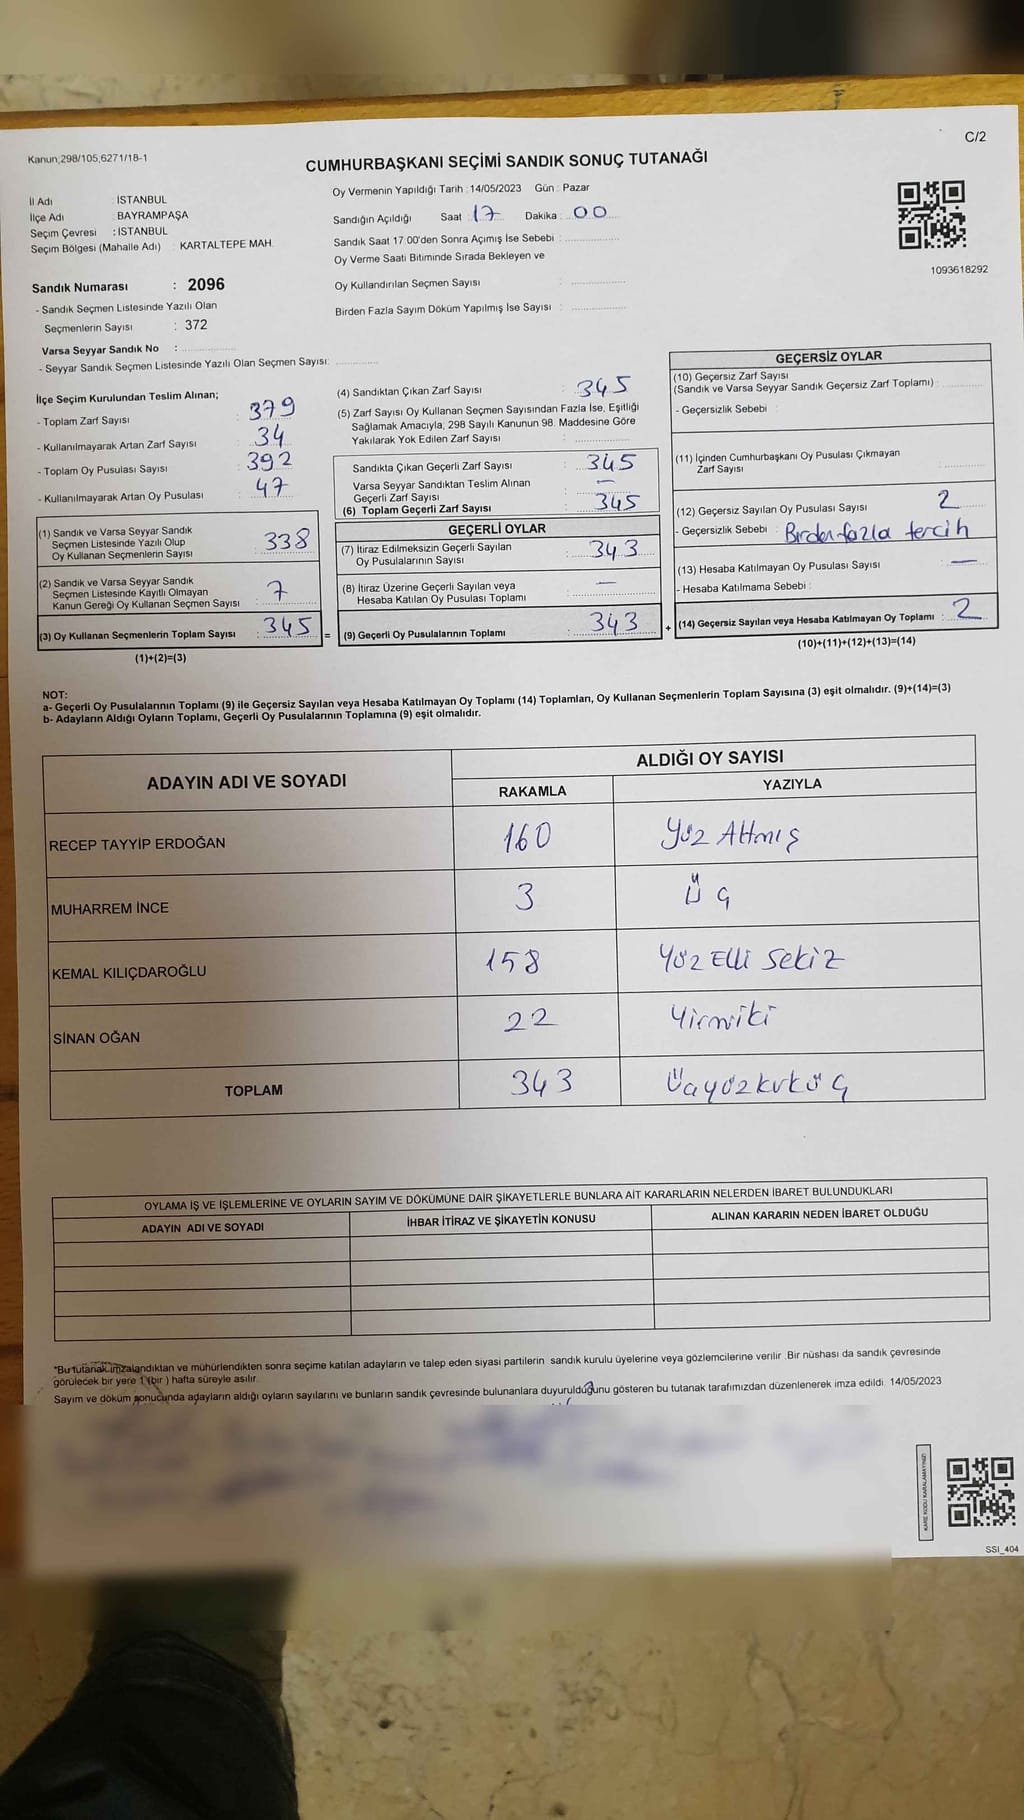 C/2
Kanun,298/105,6271/18-1
CUMHURBAŞKANI SEÇİMİ SANDIK SONUÇ TUTANAĞI
İl Adı : İSTANBUL
İlçe Adı : BAYRAMPAŞA
Seçim Çevresi : İSTANBUL
Seçim Bölgesi (Mahalle Adı) : KARTALTEPE MAH.
Oy Vermenin Yapıldığı Tarih : 14/05/2023 Gün : Pazar
Sandığın Açıldığı Saat : 17 Dakika : 00
Sandık Saat 17:00'den Sonra Açımış İse Sebebi :
Oy Verme Saati Bitiminde Sırada Bekleyen ve
Oy Kullandırılan Seçmen Sayısı :
Birden Fazla Sayım Döküm Yapılmış İse Sayısı :
1093618292
Sandık Numarası : 2096
- Sandık Seçmen Listesinde Yazılı Olan
Seçmenlerin Sayısı : 372
Varsa Seyyar Sandık No :
- Seyyar Sandık Seçmen Listesinde Yazılı Olan Seçmen Sayısı:
İlçe Seçim Kurulundan Teslim Alınan;
- Toplam Zarf Sayısı : 379
- Kullanılmayarak Artan Zarf Sayısı : 34
- Toplam Oy Pusulası Sayısı : 392
- Kullanılmayarak Artan Oy Pusulası : 47
(1) Sandık ve Varsa Seyyar Sandık
Seçmen Listesinde Yazılı Olup
Oy Kullanan Seçmenlerin Sayısı : 338
(2) Sandık ve Varsa Seyyar Sandık
Seçmen Listesinde Kayıtlı Olmayan
Kanun Gereği Oy Kullanan Seçmen Sayısı : 7
(3) Oy Kullanan Seçmenlerin Toplam Sayısı : 345 =
(1)+(2)=(3)
(4) Sandıktan Çıkan Zarf Sayısı : 345
(5) Zarf Sayısı Oy Kullanan Seçmen Sayısından Fazla İse, Eşitliği
Sağlamak Amacıyla; 298 Sayılı Kanunun 98. Maddesine Göre
Yakılarak Yok Edilen Zarf Sayısı :
Sandıkta Çıkan Geçerli Zarf Sayısı : 345
Varsa Seyyar Sandıktan Teslim Alınan
Geçerli Zarf Sayısı : —
(6) Toplam Geçerli Zarf Sayısı : 345
GEÇERLİ OYLAR
(7) İtiraz Edilmeksizin Geçerli Sayılan
Oy Pusulalarının Sayısı : 343
(8) İtiraz Üzerine Geçerli Sayılan veya
Hesaba Katılan Oy Pusulası Toplamı : —
(9) Geçerli Oy Pusulalarının Toplamı : 343 +
GEÇERSİZ OYLAR
(10) Geçersiz Zarf Sayısı
(Sandık ve Varsa Seyyar Sandık Geçersiz Zarf Toplamı) :
- Geçersizlik Sebebi :
(11) İçinden Cumhurbaşkanı Oy Pusulası Çıkmayan
Zarf Sayısı :
(12) Geçersiz Sayılan Oy Pusulası Sayısı : 2
- Geçersizlik Sebebi : Birden fazla tercih
(13) Hesaba Katılmayan Oy Pusulası Sayısı : —
- Hesaba Katılmama Sebebi :
(14) Geçersiz Sayılan veya Hesaba Katılmayan Oy Toplamı : 2
(10)+(11)+(12)+(13)=(14)
NOT:
a- Geçerli Oy Pusulalarının Toplamı (9) ile Geçersiz Sayılan veya Hesaba Katılmayan Oy Toplamı (14) Toplamları, Oy Kullanan Seçmenlerin Toplam Sayısına (3) eşit olmalıdır. (9)+(14)=(3)
b- Adayların Aldığı Oyların Toplamı, Geçerli Oy Pusulalarının Toplamına (9) eşit olmalıdır.
ADAYIN ADI VE SOYADI ALDIĞI OY SAYISI
RAKAMLA YAZIYLA
RECEP TAYYİP ERDOĞAN 160 Yüz Altmış
MUHARREM İNCE 3 Üç
KEMAL KILIÇDAROĞLU 158 Yüz Elli Sekiz
SİNAN OĞAN 22 Yirmiki
TOPLAM 343 Üçyüzkırküç
OYLAMA İŞ VE İŞLEMLERİNE VE OYLARIN SAYIM VE DÖKÜMÜNE DAİR ŞİKAYETLERLE BUNLARA AİT KARARLARIN NELERDEN İBARET BULUNDUKLARI
ADAYIN ADI VE SOYADI İHBAR İTİRAZ VE ŞİKAYETİN KONUSU ALINAN KARARIN NEDEN İBARET OLDUĞU
*Bu tutanak imzalandıktan ve mühürlendikten sonra seçime katılan adayların ve talep eden siyasi partilerin sandık kurulu üyelerine veya gözlemcilerine verilir .Bir nüshası da sandık çevresinde
görülecek bir yere 1 (bir ) hafta süreyle asılır.
Sayım ve döküm sonucunda adayların aldığı oyların sayılarını ve bunların sandık çevresinde bulunanlara duyurulduğunu gösteren bu tutanak tarafımızdan düzenlenerek imza edildi. 14/05/2023
KARE KODU KARALAMAYINIZ!
SSI_404